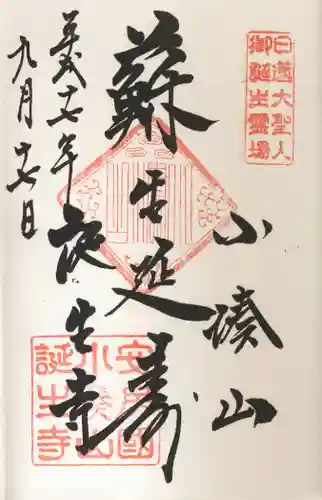 日蓮大聖人
御誕生霊場
小湊山
蘇生延寿
誕生寺
平成十七年
九月十七日
安房国
小湊山
誕生寺